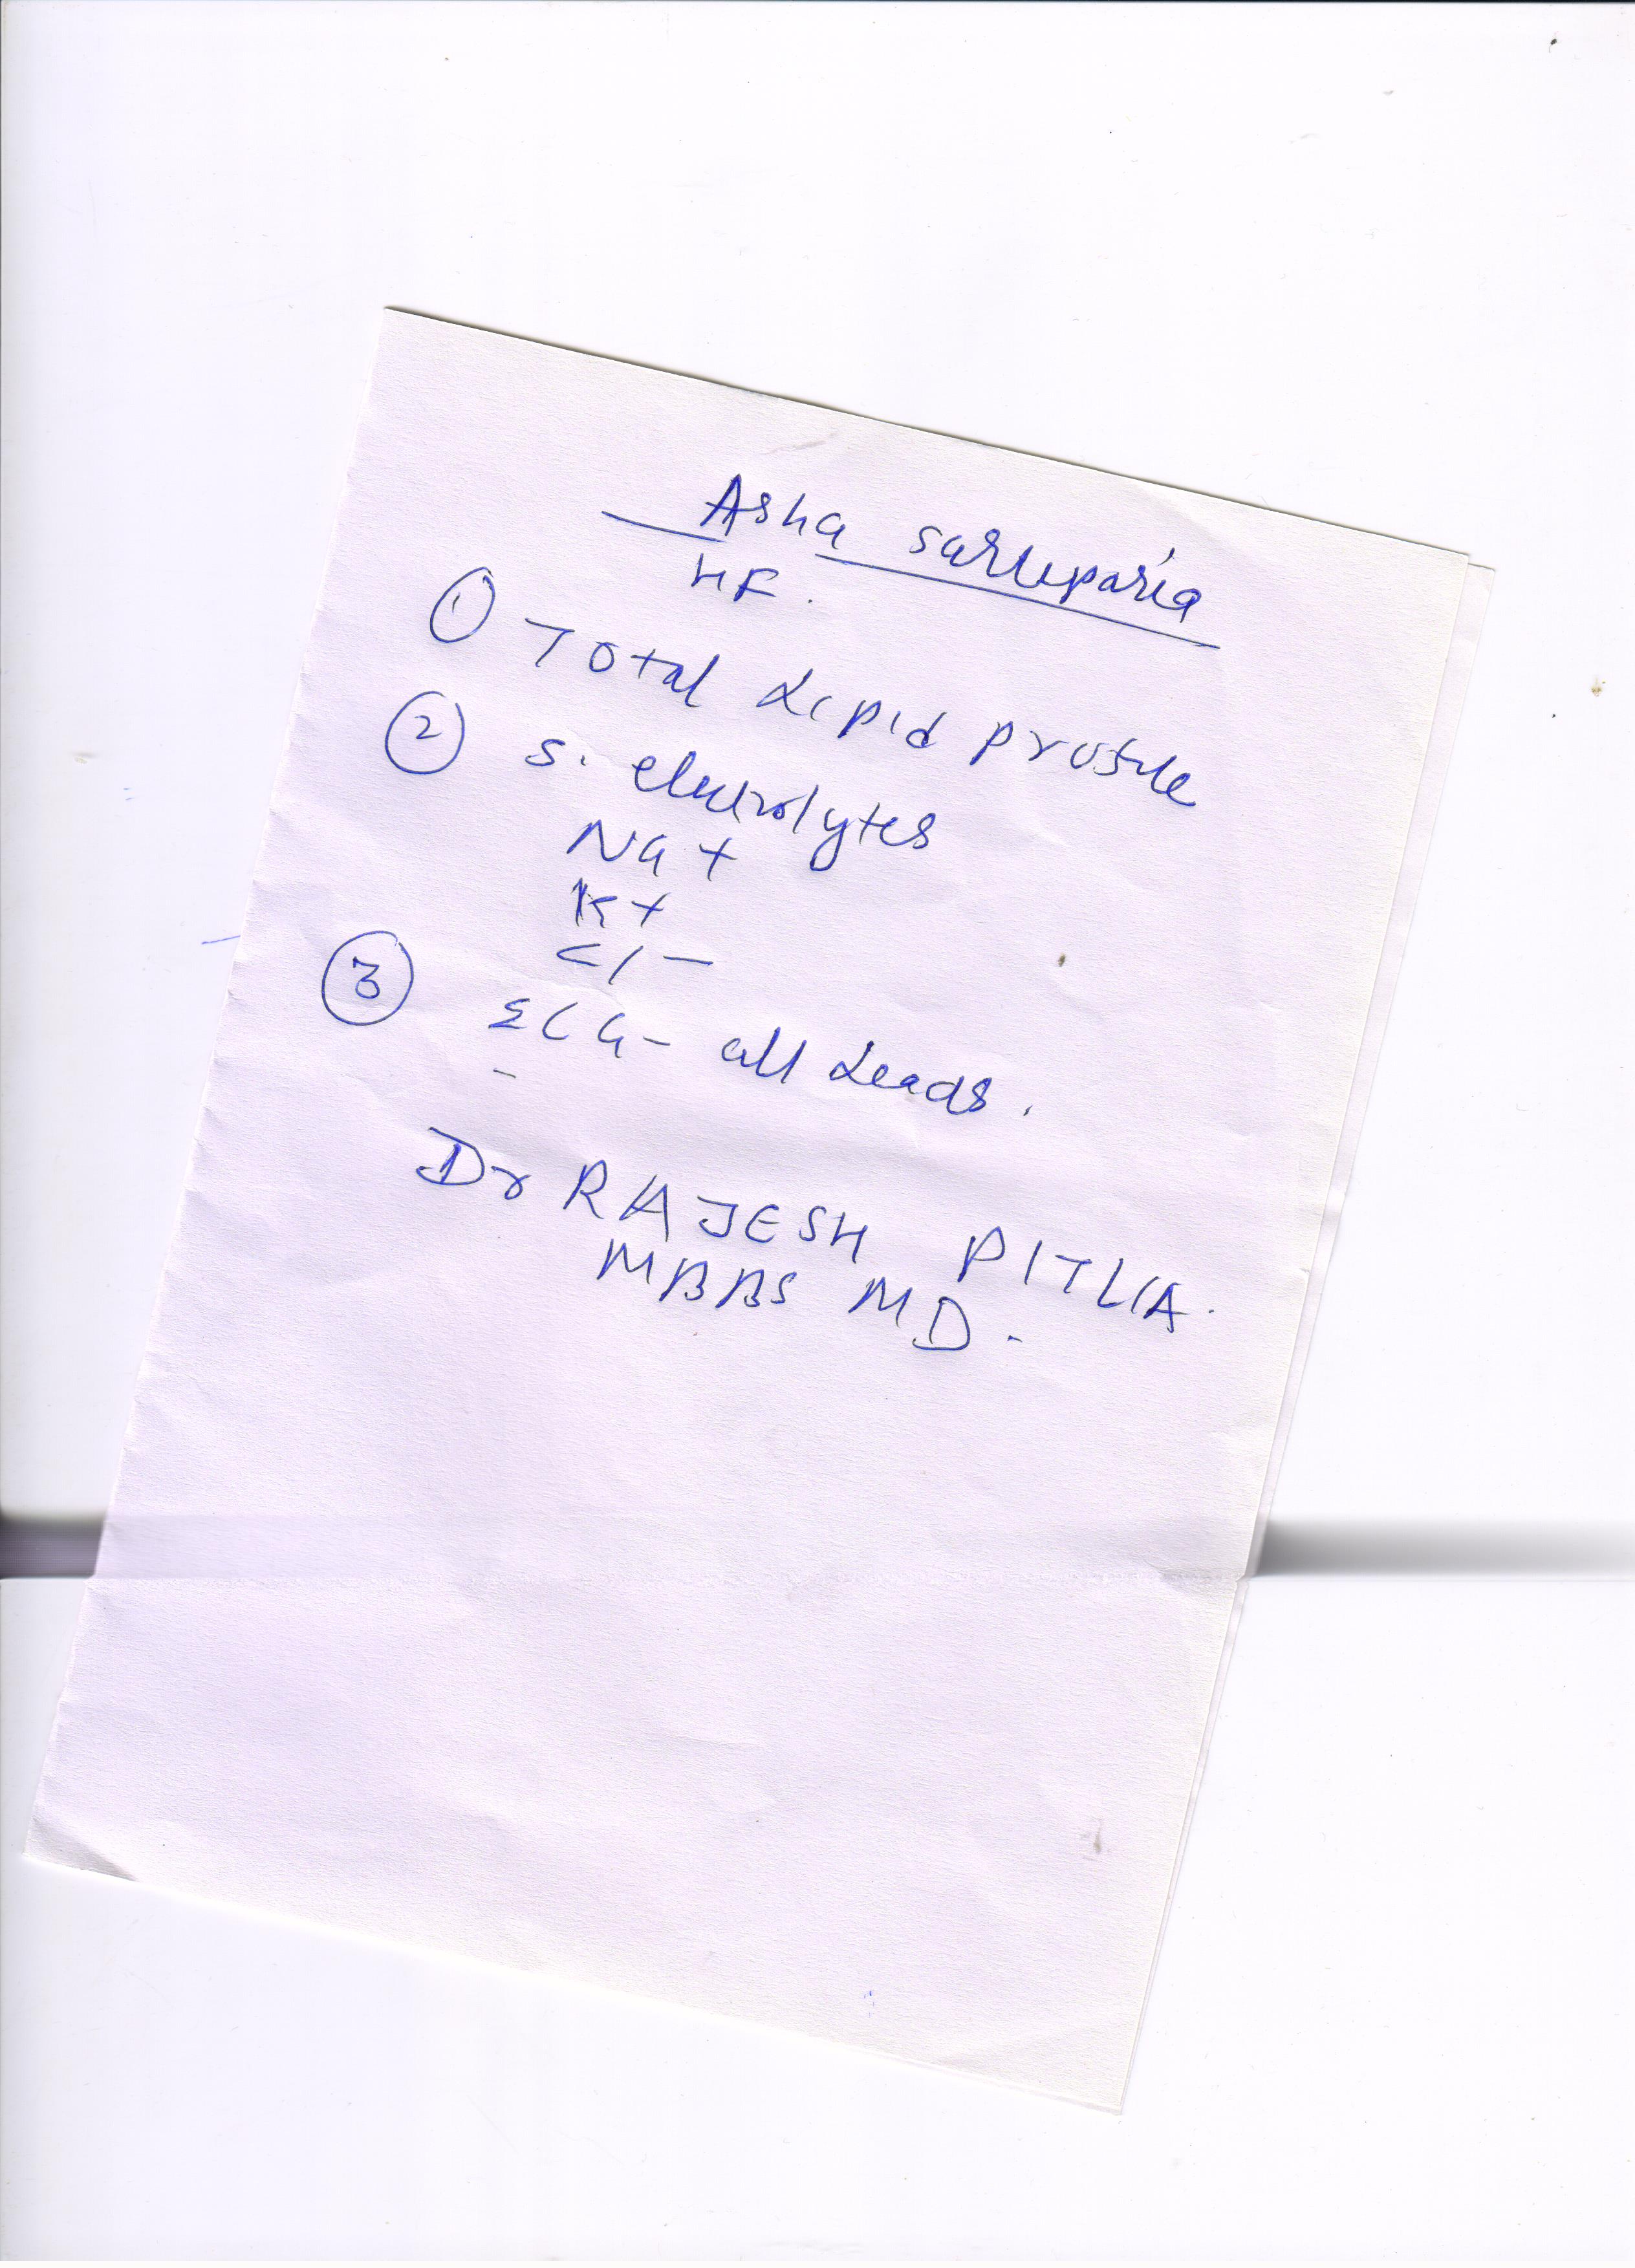 Asha saruparia
HF.
① Total Lipid profile
② S. electrolytes
Na +
K +
Cl -
③ ECG - all Leads.
Dr RAJESH PITLIA.
MBBS MD.